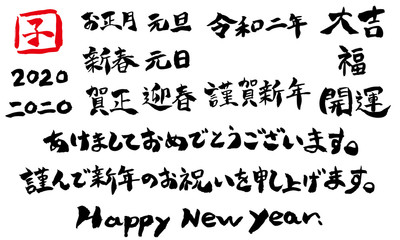 子 お正月 元旦 令和二年 大吉
2020 新春 元日 福
二〇二〇 賀正 迎春 謹賀新年 開運
あけましておめでとうございます。
謹んで新年のお祝いを申し上げます。
Happy New Year.